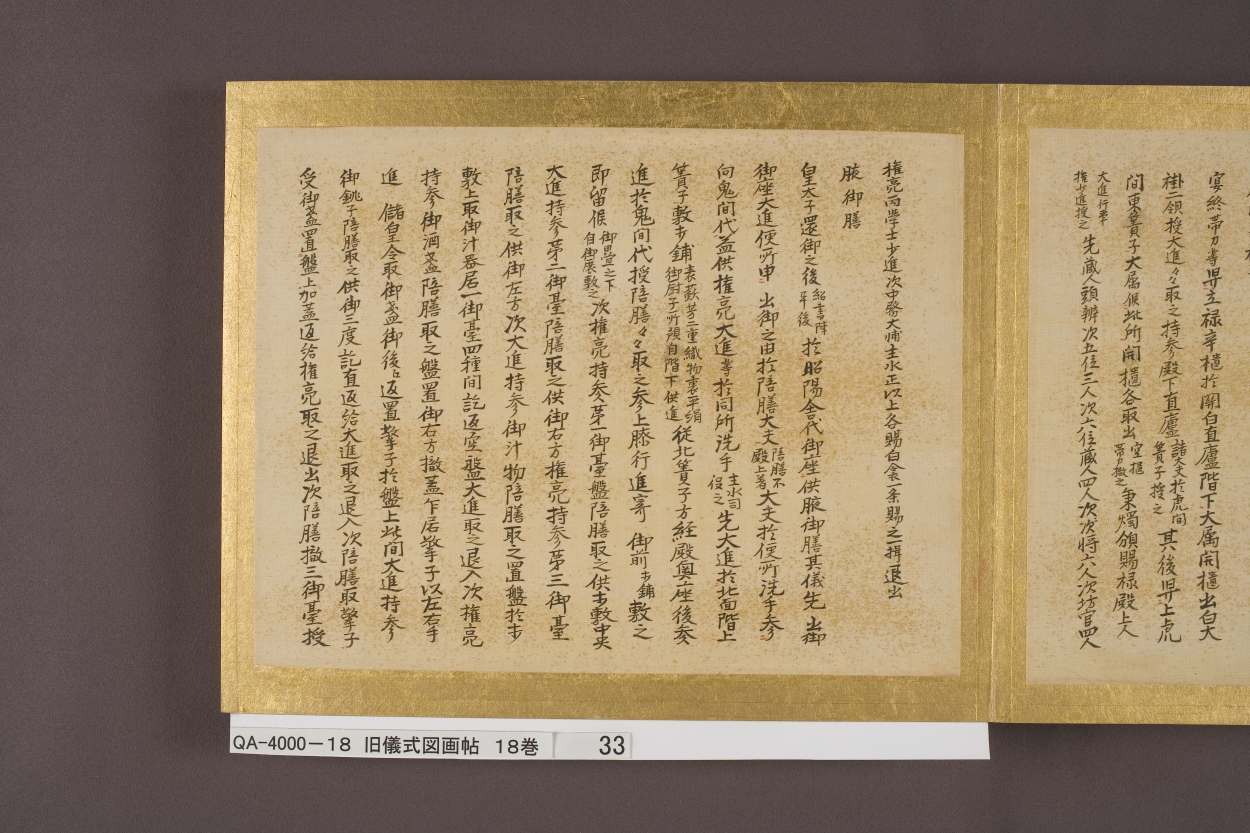 宴終帯刀等舁立禄辛櫃於關白直廬階下大属開櫃出白大
褂二領授大進々々取之持参殿下直廬諸大夫於虎間簀子授之其後舁上虎
間東簀子大属候此所開櫃各取出空櫃帯刀撤之秉燭頒賜禄殿上人
大進行事権少進授之先蔵人頭辨次五位三人次六位蔵人四人次次将六人次坊官四人
権亮両学士少進次中務大輔主水正以上各賜白衾一条賜之一揖退出
腋御膳
皇太子還御之後紹書陣平後於昭陽舎代御座供腋御膳其儀先出御
御座大進便所申出御之由於陪膳大夫陪膳不殿上着大夫於便所洗手参
向鬼間代益供権亮大進等於同所洗手主水司役之先大進於北面階上
簀子敷打鋪表蘇芳二重織物裏平絹御厨子所預自階下供進従北簀子方経殿與座後参
進於鬼間代授陪膳々々取之参上膝行進寄御前打鋪敷之
即留候御畳之下自御展敷之次権亮持参第一御臺盤陪膳取之供打敷中央
大進持参第二御臺陪膳取之供御右方権亮持参第三御臺
陪膳取之供御左方次大進持参御汁物陪膳取之置盤於打
敷上取御汁器居一御臺四種間訖返空盤大進取之退入次権亮
持参御酒盞陪膳取之盤置御右方撤蓋乍居擎子以左右手
進儲皇令取御盞御後返置擎子於盤上此間大進持参
御銚子陪膳取之供御三度訖直返給大進取之退入次陪膳取擎子
受御盞置盤上加蓋返給権亮取之退出次陪膳撤三御臺授
QA-4000-18 旧儀式図画帖 18巻 33